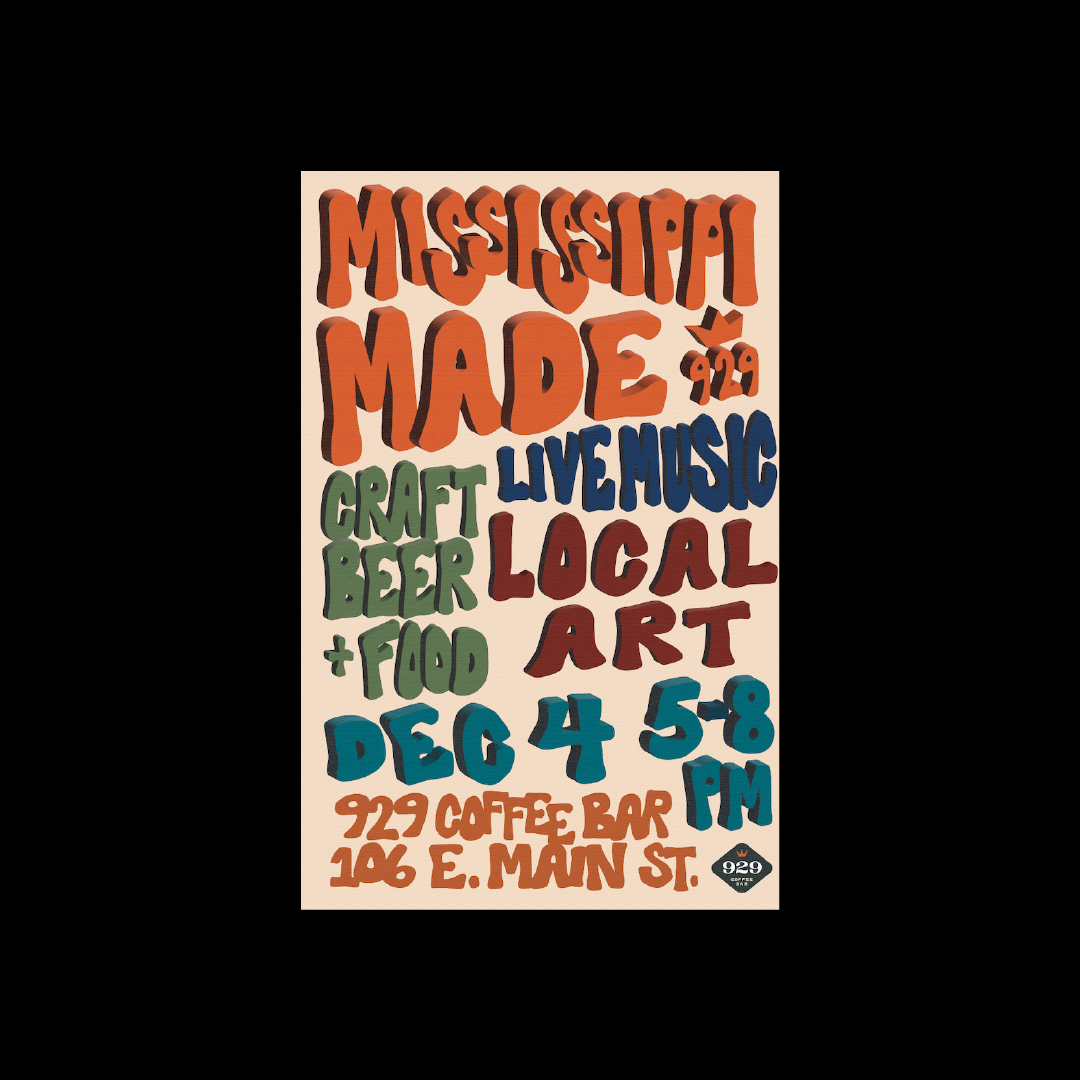 MISSISSIPPI
MADE
929
LIVE MUSIC
CRAFT
BEER
+ FOOD
LOCAL
ART
DEC 4 5-8
PM
929 COFFEE BAR
106 E. MAIN ST.
929
COFFEE
BAR